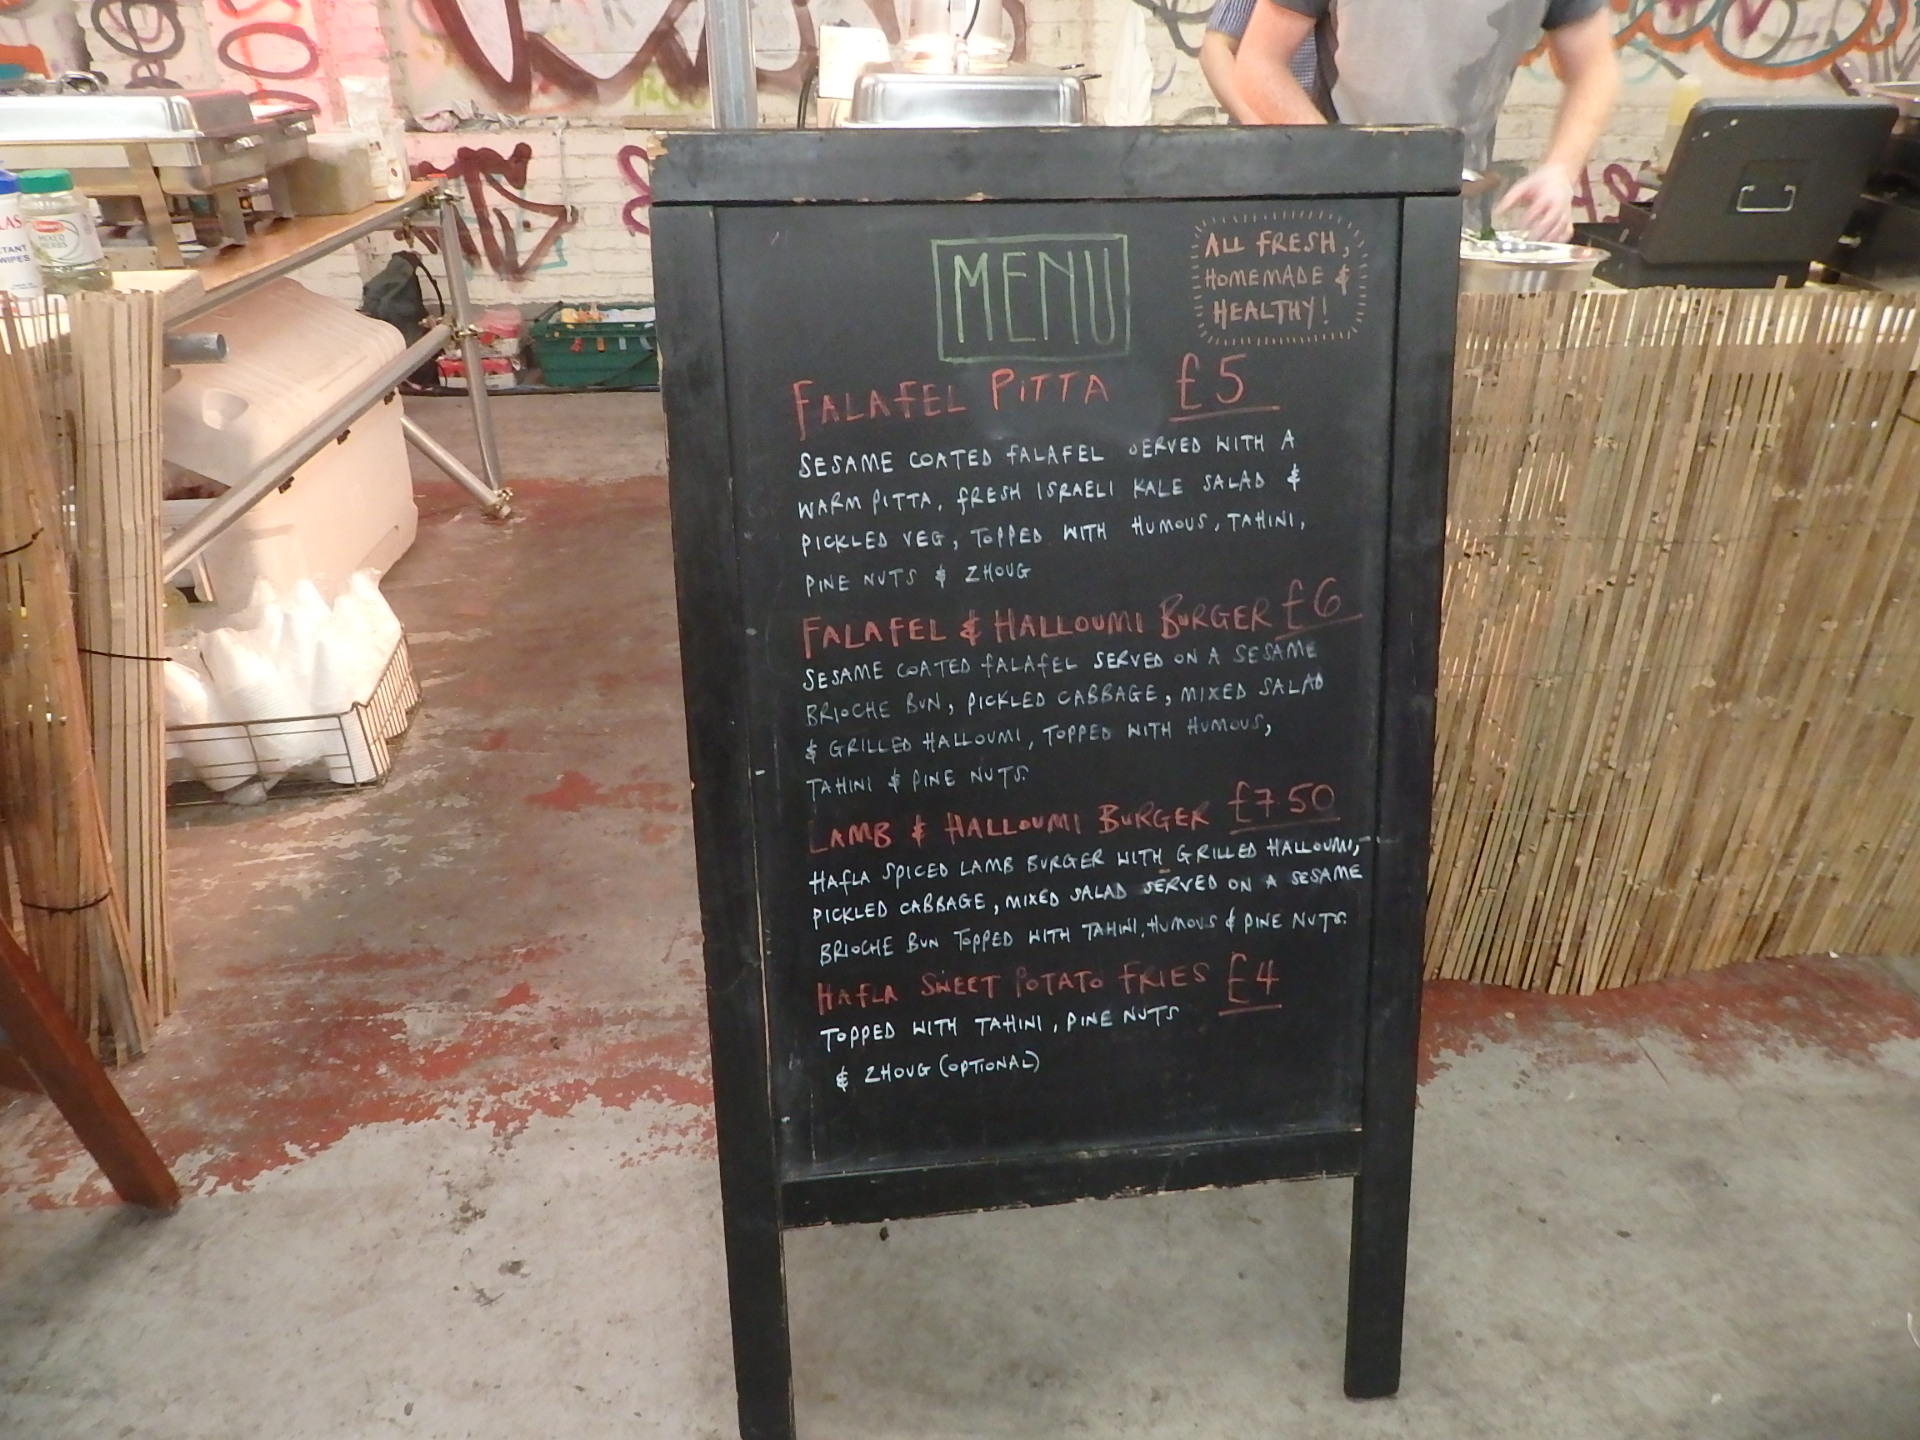 MENU
ALL FRESH,
HOMEMADE &
HEALTHY!
FALAFEL PITTA £5
SESAME COATED FALAFEL SERVED WITH A
WARM PITTA, FRESH ISRAELI KALE SALAD &
PICKLED VEG, TOPPED WITH HUMOUS, TAHINI,
PINE NUTS & ZHOUG
FALAFEL & HALLOUMI BURGER £6
SESAME COATED FALAFEL SERVED ON A SESAME
BRIOCHE BUN, PICKLED CABBAGE, MIXED SALAD
& GRILLED HALLOUMI, TOPPED WITH HUMOUS,
TAHINI & PINE NUTS.
LAMB & HALLOUMI BURGER £7.50
HAFLA SPICED LAMB BURGER WITH GRILLED HALLOUMI,
PICKLED CABBAGE, MIXED SALAD SERVED ON A SESAME
BRIOCHE BUN TOPPED WITH TAHINI, HUMOUS & PINE NUTS.
HAFLA SWEET POTATO FRIES £4
TOPPED WITH TAHINI, PINE NUTS
& ZHOUG (OPTIONAL)
MIXED
HERBS
WIPES